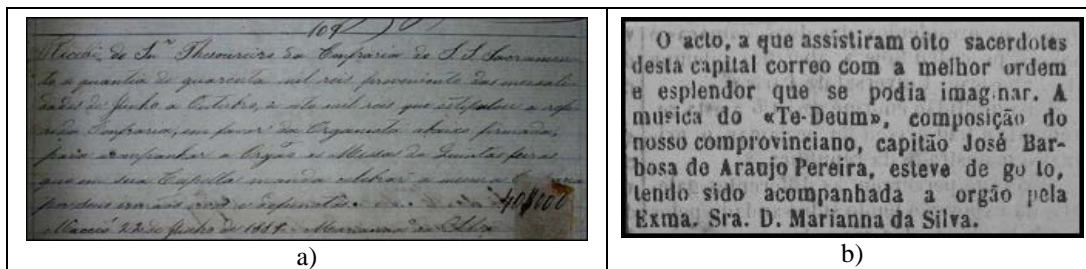 109
Recebi do Snr. Thesoureiro da Confraria do S. S. Sacramen-
to a quantia de quarenta mil reis, proveniente das mensali-
dades de Junho a Outubro, a oito mil reis que a refe-
rida Confraria, em favor da Organista abaixo firmada,
para acompanhar a Orgão as Missas das Quintas feiras
que em sua Capella manda celebrar a mesma
por seus irmãos vivos e defuntos.
40$000
Maceió 22 de Junho de Marianna da Silva
a)
O acto, a que assistiram oito sacerdotes
desta capital correo com a melhor ordem
e esplendor que se podia imag nar. A
musica do «Te-Deum», composição do
nosso comprovinciano, capitão José Bar-
bosa de Araujo Pereira, esteve de go to,
tendo sido acompanhada a orgão pela
Exma. Sra. D. Marianna da Silva.
b)